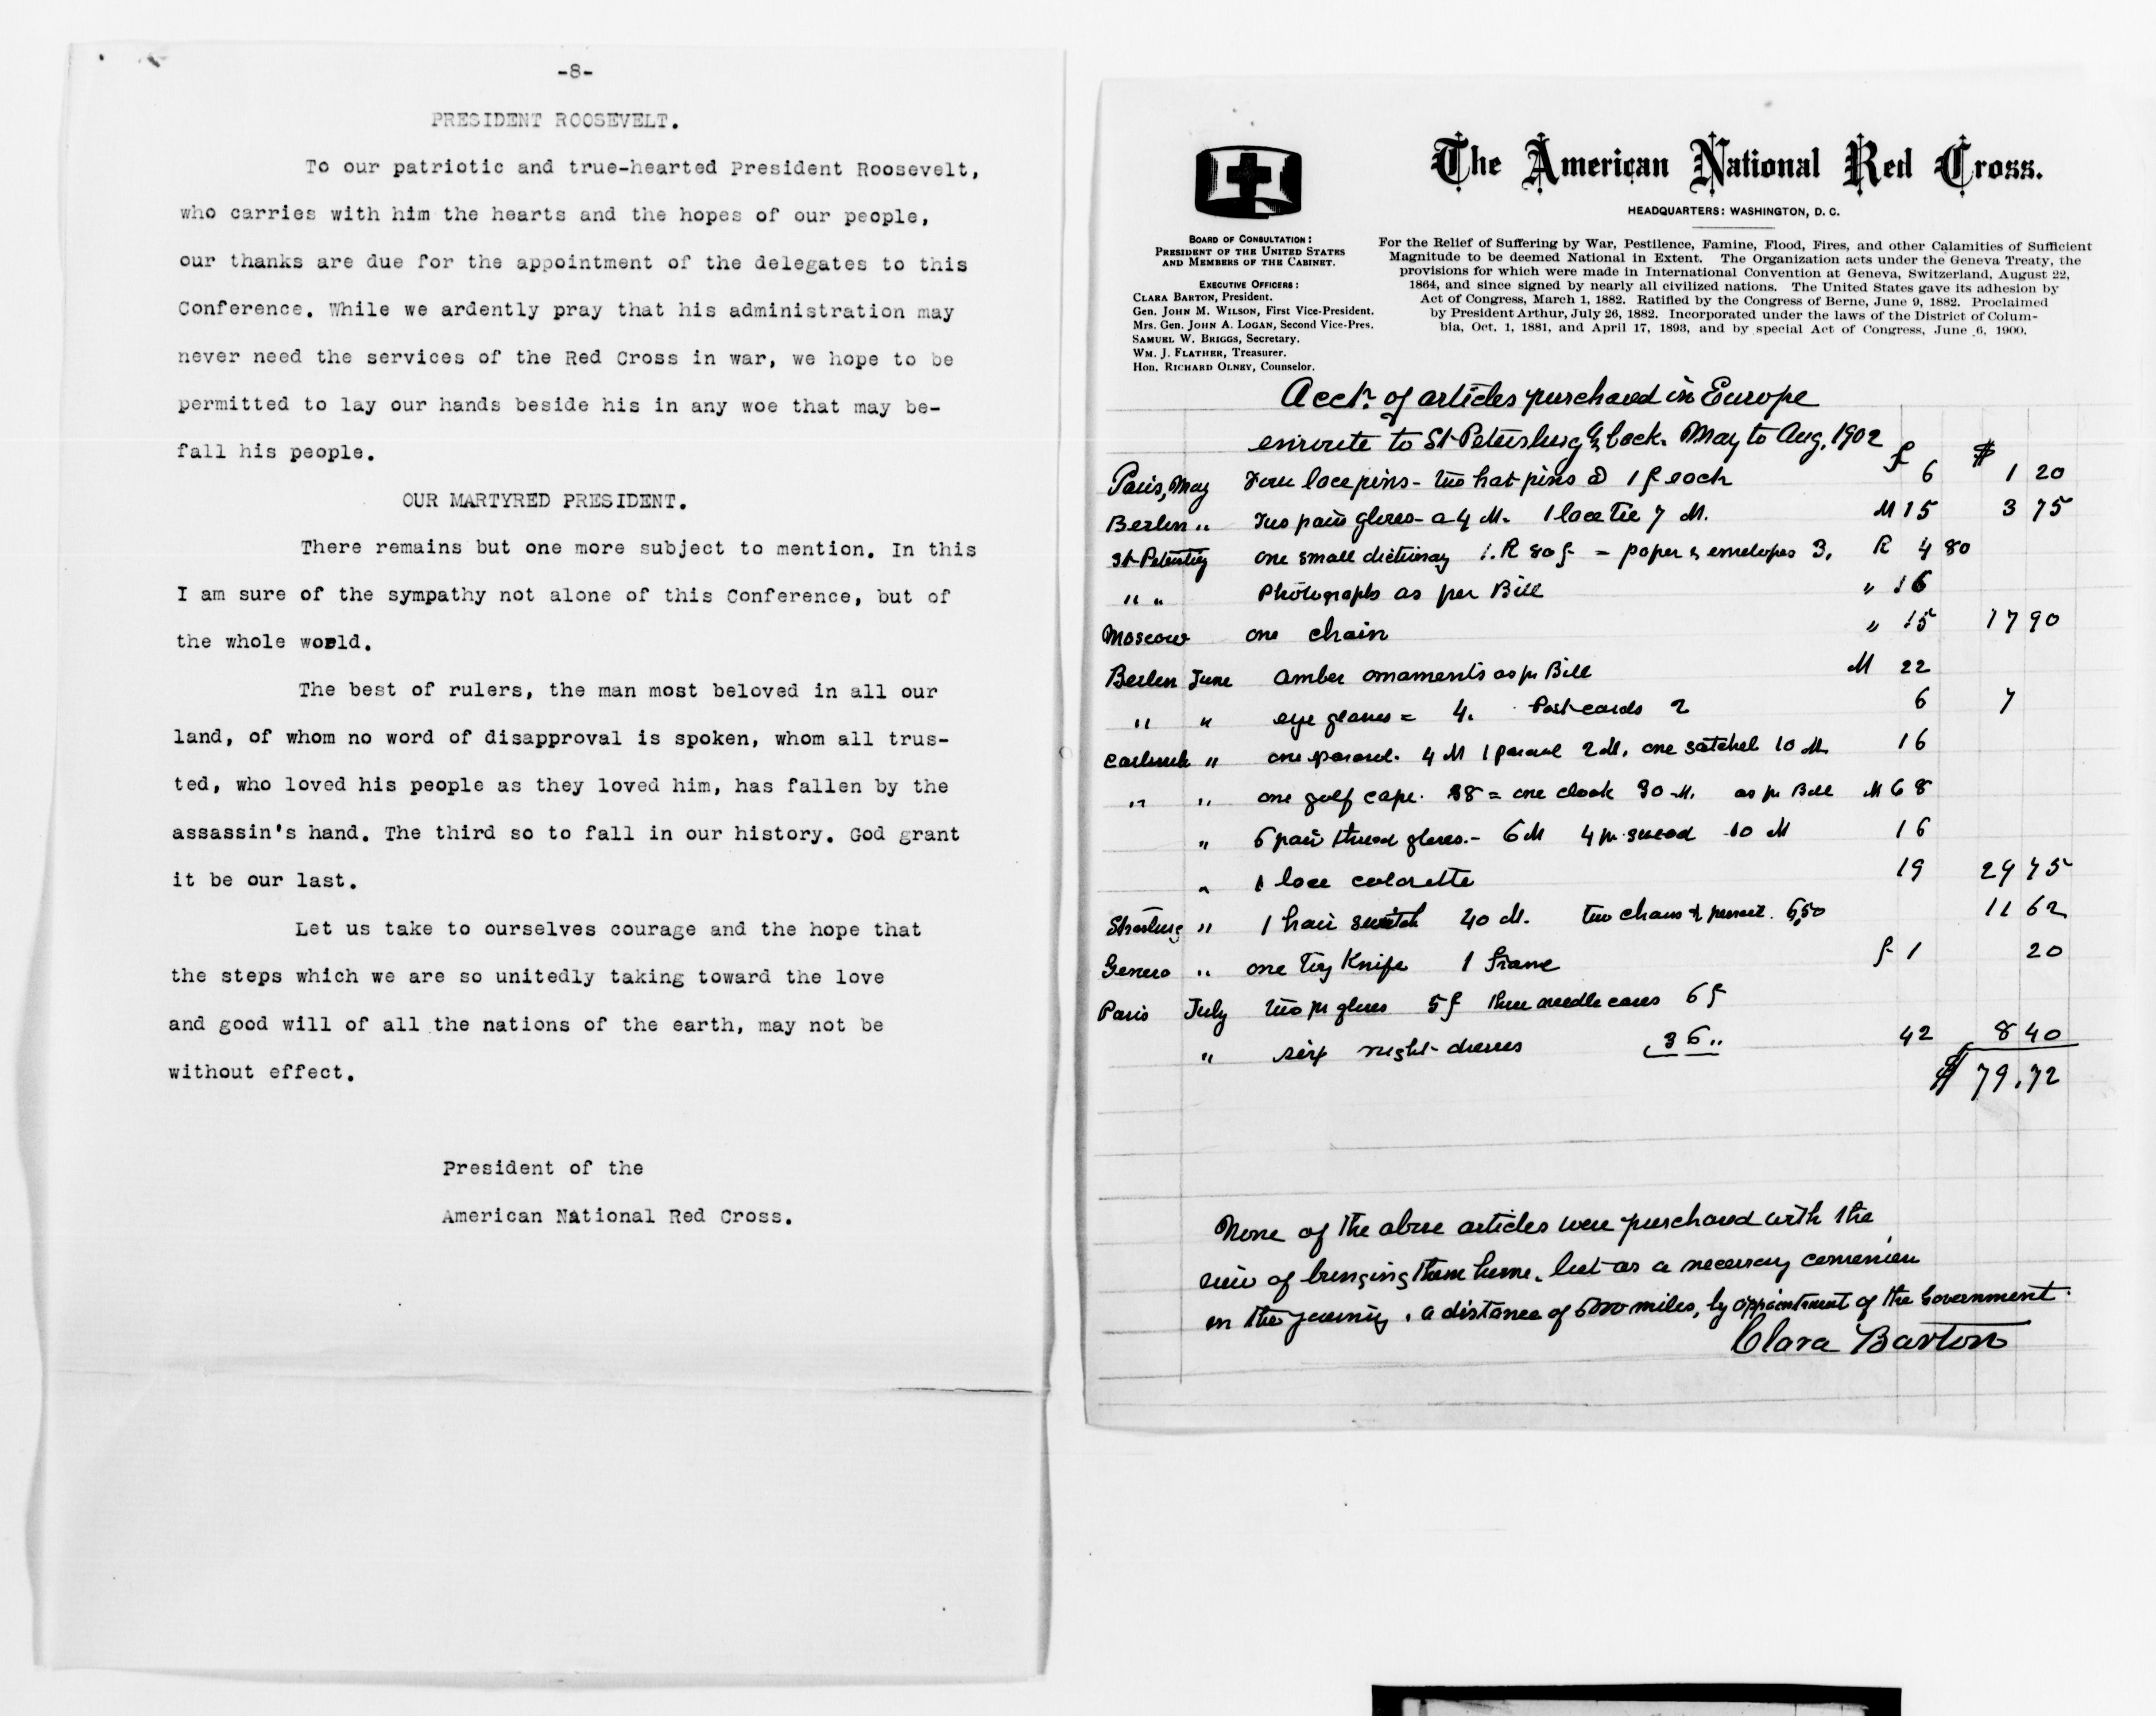 -8-
PRESIDENT ROOSEVELT.
To our patriotic and true-hearted President Roosevelt,
who carries with him the hearts and the hopes of our people,
our thanks are due for the appointment of the delegates to this
Conference. While we ardently pray that his administration may
never need the services of the Red Cross in war, we hope to be
permitted to lay our hands beside his in any woe that may be-
fall his people.
OUR MARTYRED PRESIDENT.
There remains but one more subject to mention. In this
I am sure of the sympathy not alone of this Conference, but of
the whole world.
The best of rulers, the man most beloved in all our
land, of whom no word of disapproval is spoken, whom all trus-
ted, who loved his people as they loved him, has fallen by the
assassin's hand. The third so to fall in our history. God grant
it be our last.
Let us take to ourselves courage and the hope that
the steps which we are so unitedly taking toward the love
and good will of all the nations of the earth, may not be
without effect.
President of the
American National Red Cross.
The American National Red Cross.
HEADQUARTERS: WASHINGTON, D. C.
BOARD OF CONSULTATION:
PRESIDENT OF THE UNITED STATES
AND MEMBERS OF THE CABINET.
EXECUTIVE OFFICERS:
CLARA BARTON, President.
Gen. JOHN M. WILSON, First Vice-President.
Mrs. Gen. JOHN A. LOGAN, Second Vice-Pres.
SAMUEL W. BRIGGS, Secretary.
WM. J. FLATHER, Treasurer.
Hon. RICHARD OLNEY, Counselor.
For the Relief of Suffering by War, Pestilence, Famine, Flood, Fires, and other Calamities of Sufficient
Magnitude to be deemed National in Extent. The Organization acts under the Geneva Treaty, the
provisions for which were made in International Convention at Geneva, Switzerland, August 22,
1864, and since signed by nearly all civilized nations. The United States gave its adhesion by
Act of Congress, March 1, 1882. Ratified by the Congress of Berne, June 9, 1882. Proclaimed
by President Arthur, July 26, 1882. Incorporated under the laws of the District of Colum-
bia, Oct. 1, 1881, and April 17, 1893, and by special Act of Congress, June 6, 1900.
Acct. of articles purchased in Europe
enroute to St Petersburg & back. May to Aug, 1902
Paris, May Four lace pins - two hat pins @ 1 f each f 6 $ 1 20
Berlin " Two pair gloves - a 4 M. 1 lace tie 7 M. M 15 3 75
St Petersbg one small dictionary 1. R 80 - paper & envelopes 3. R 4 80
" " Photographs as per Bill " 16
Moscow one chain " 15 17 90
Berlin June amber ornaments as pr Bill M 22
" " eye glasses = 4. Post cards 2 6 7
Carlsruh " one parasol. 4 M 1 parasol 2 M. one satchel 10 M 16
" " one golf cape. 38 = one cloak 30 M. as pr Bill M 68
" 6 pair thread gloves. - 6 M 4 pr suead 10 M 16
" 1 lace colarette 19 29 75
Strasburg " 1 hair switch 40 M. two chains & 6,50 11 62
Geneva " one toy Knife 1 franc f 1 20
Paris July two pr gloves 5 f three needle cases 6 f
" six night-dresses 36 " 42 8 40
$ 79.72
None of the above articles were purchased with the
view of bringing them home, but as a necessary convenien
on the journey, a distance of 5000 miles, by appointment of the Government.
Clara Barton